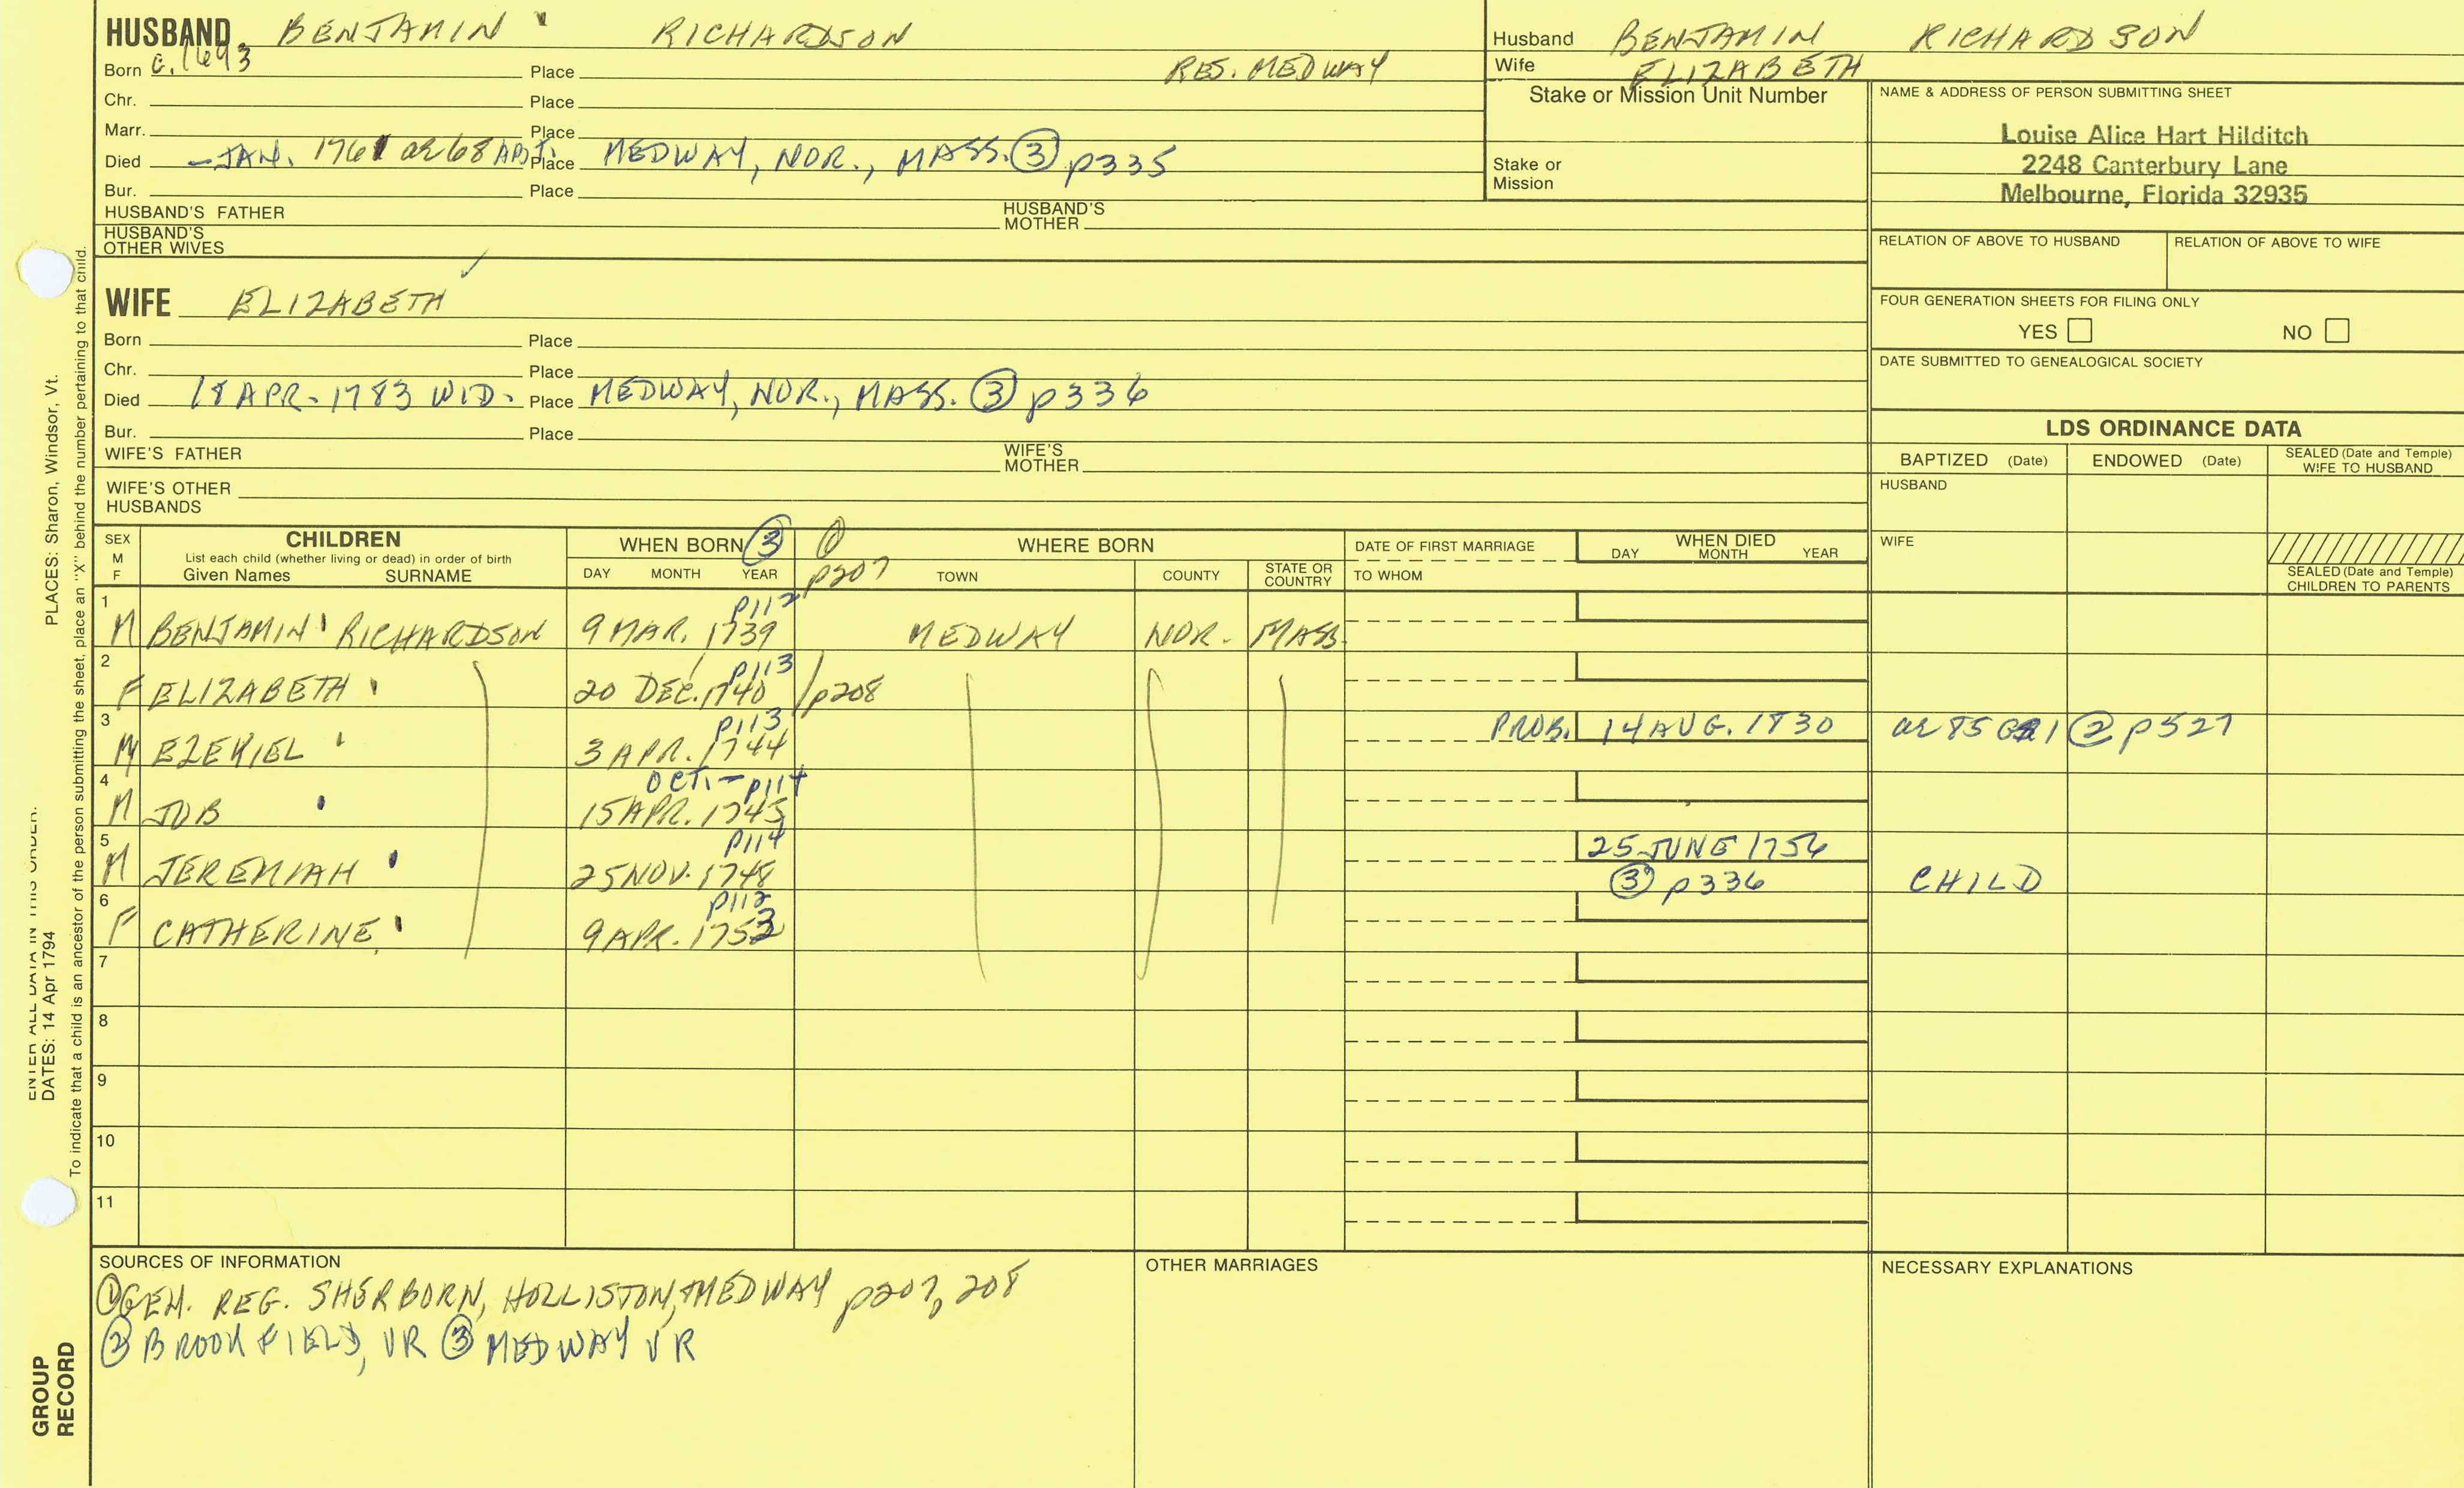 HUSBAND BENJAMIN RICHARDSON
Born c.1693 Place RES. MEDWAY
Chr. Place
Marr. Place
Died - JAN. 1761 Æ 68 ABT. Place MEDWAY, NOR., MASS. ③ p335
Bur. Place
HUSBAND'S FATHER HUSBAND'S MOTHER
HUSBAND'S OTHER WIVES
WIFE ELIZABETH
Born Place
Chr. Place
Died 18 APR. 1783 WID. Place MEDWAY, NOR., MASS. ③ p336
Bur. Place
WIFE'S FATHER WIFE'S MOTHER
WIFE'S OTHER HUSBANDS
Husband BENJAMIN RICHARDSON
Wife ELIZABETH
Stake or Mission Unit Number
Stake or Mission
NAME & ADDRESS OF PERSON SUBMITTING SHEET
Louise Alice Hart Hilditch
2248 Canterbury Lane
Melbourne, Florida 32935
RELATION OF ABOVE TO HUSBAND RELATION OF ABOVE TO WIFE
FOUR GENERATION SHEETS FOR FILING ONLY
YES NO
DATE SUBMITTED TO GENEALOGICAL SOCIETY
LDS ORDINANCE DATA
BAPTIZED (Date) ENDOWED (Date) SEALED (Date and Temple) WIFE TO HUSBAND
HUSBAND
WIFE
SEALED (Date and Temple) CHILDREN TO PARENTS
SEX M F
CHILDREN
List each child (whether living or dead) in order of birth
Given Names SURNAME
WHEN BORN ③
DAY MONTH YEAR
① p207 WHERE BORN
TOWN COUNTY STATE OR COUNTRY
DATE OF FIRST MARRIAGE
TO WHOM
WHEN DIED
DAY MONTH YEAR
p112
1 M BENJAMIN RICHARDSON 9 MAR. 1739 MEDWAY NOR. MASS.
p113
2 F ELIZABETH 20 DEC. 1740 / p208
p113
3 M EZEKIEL 3 APR. 1744 PROB. 14 AUG. 1830 Æ 85 ② p527
OCT. - p114
4 M JOB 15 APR. 1745
p114
5 M JEREMIAH 25 NOV. 1748 25 JUNE 1756 ③ p336 CHILD
p112
6 F CATHERINE 9 APR. 1753
7
8
9
10
11
SOURCES OF INFORMATION
① GEN. REG. SHERBORN, HOLLISTON, + MEDWAY p207, 208
② BROOKFIELD, VR ③ MEDWAY VR
OTHER MARRIAGES
NECESSARY EXPLANATIONS
PLACES: Sharon, Windsor, Vt.
ENTER ALL DATA IN THIS ORDER:
DATES: 14 Apr 1794
To indicate that a child is an ancestor of the person submitting the sheet, place an "X" behind the number pertaining to that child.
GROUP
RECORD